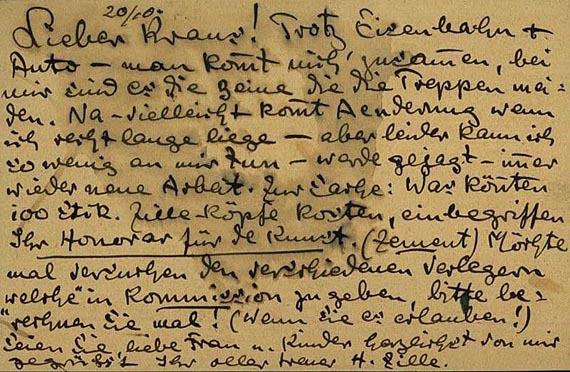 20/10.
Lieber Kraus! Trotz Eisenbahn +
Auto – man kom̄t nich' zusam̄en, bei
mir sind es die Beine die die Treppen mei=
den. Na – vielleicht kom̄t Aenderung wenn
ich recht lange liege – aber leider kann ich
so wenig an mir tun – werde gejagt – im̄er
wieder neue Arbeit. Zur Sache: Was kön̄ten
100 Stck. Zille-Köpfe kosten, einbegriffen
Ihr Honorar für de Kunst. (Zement) Möchte
mal versuchen den verschiedenen Verlegern
"welche" in Kommission zu geben, bitte be=
rechnen Sie mal! (Wenn Sie es erlauben!)
Seien Sie, liebe Frau u. Kinder herzlichst von mir
gegrüßt Ihr oller treuer H. Zille.